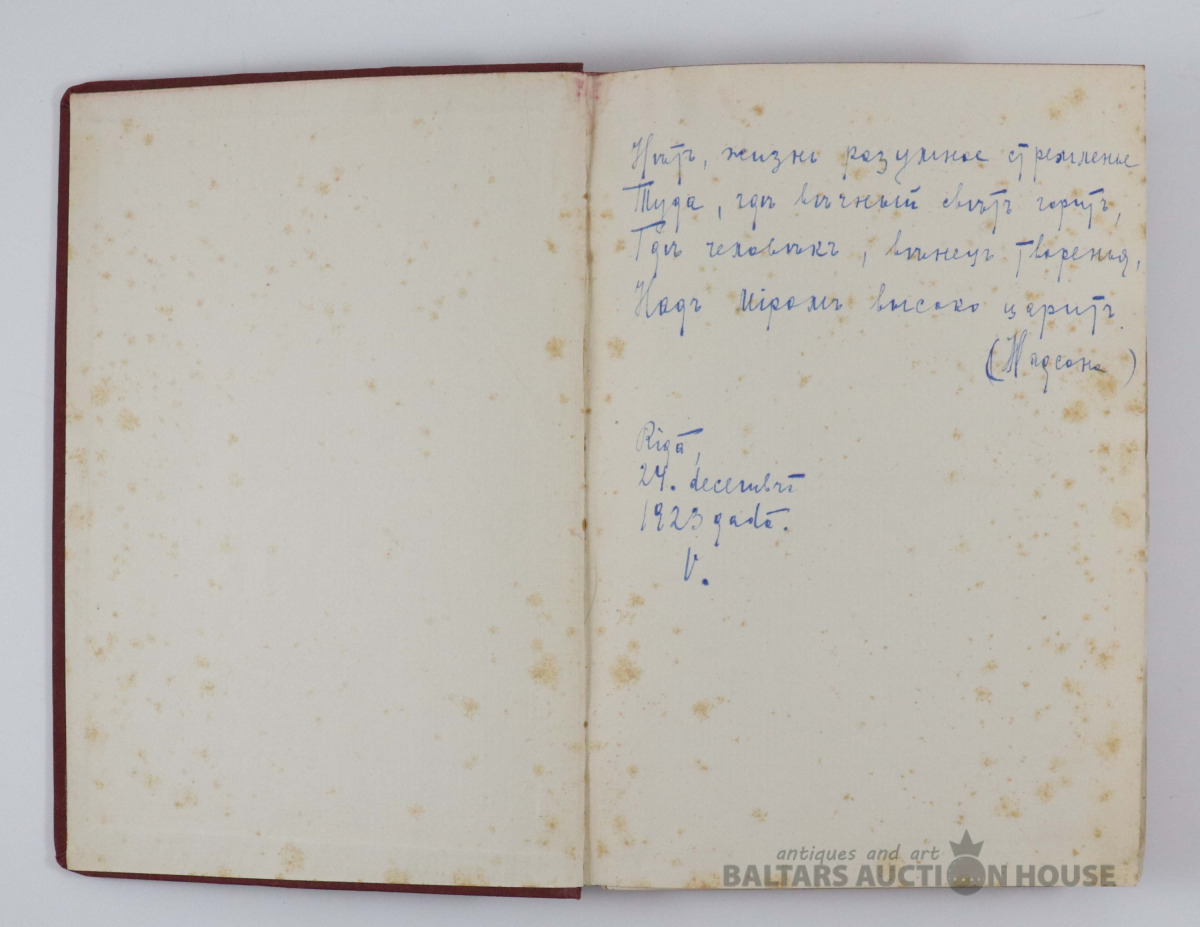 Нѣтъ, жизнь разумное стремленье
Туда, гдѣ вѣчный свѣтъ горитъ,
Гдѣ человѣкъ, вѣнецъ творенья,
Надъ міромъ высоко царитъ.
(Надсонъ)
Rīgā,
24. decembrī
1923 gadā.
V.
antiques and art
BALTARS AUCTION HOUSE